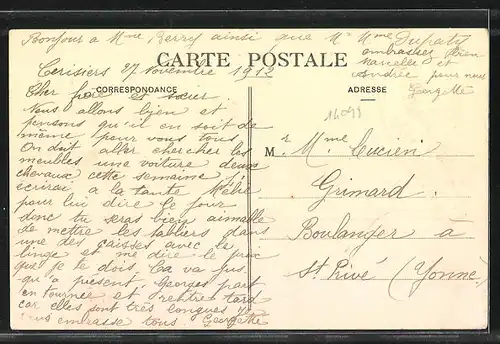 Bonjour a Mme Berry ainsi que Mr Mme Dupaty
embrasser bien
Marcelle et
Andrée pour nous
Georgette
CARTE POSTALE
Cerisiers 27 Novembre 1912
CORRESPONDANCE
ADRESSE
Cher frère et sœur
Nous allons bien et
pensons qu'il en soit de
même pour vous tous
On doit aller chercher les
meubles une voiture deux
chevaux cette semaine j'
écrirai a la tante Mélie
pour lui dire le jour
donc tu seras bien aimable
de mettre les tabliers dans
une des caisses avec le
linge et me dire le prix
que je te dois. Ca va plus
qu'a présent. Georges part
en tournée et rentre tard
car elles sont très longues je
vous embrasse tous Georgette
16099
M r Mme Lucien
Grimard.
Boulanger à
St Privé (Yonne)